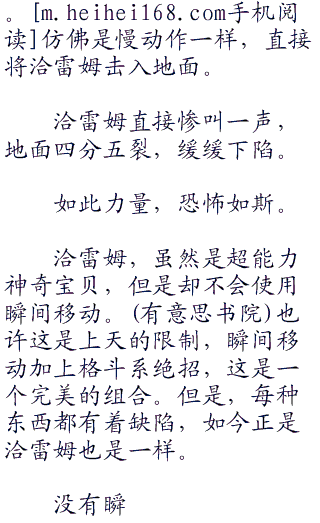 。[m.heihei168.com手机阅
读]仿佛是慢动作一样，直接
将洽雷姆击入地面。
洽雷姆直接惨叫一声，
地面四分五裂，缓缓下陷。
如此力量，恐怖如斯。
洽雷姆，虽然是超能力
神奇宝贝，但是却不会使用
瞬间移动。(有意思书院)也
许这是上天的限制，瞬间移
动加上格斗系绝招，这是一
个完美的组合。但是，每种
东西都有着缺陷，如今正是
洽雷姆也是一样。
没有瞬